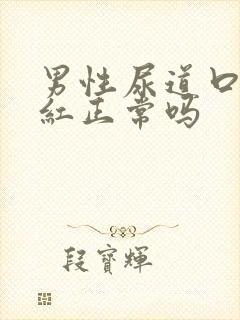 男性尿道口
紅正常吗
段寶輝